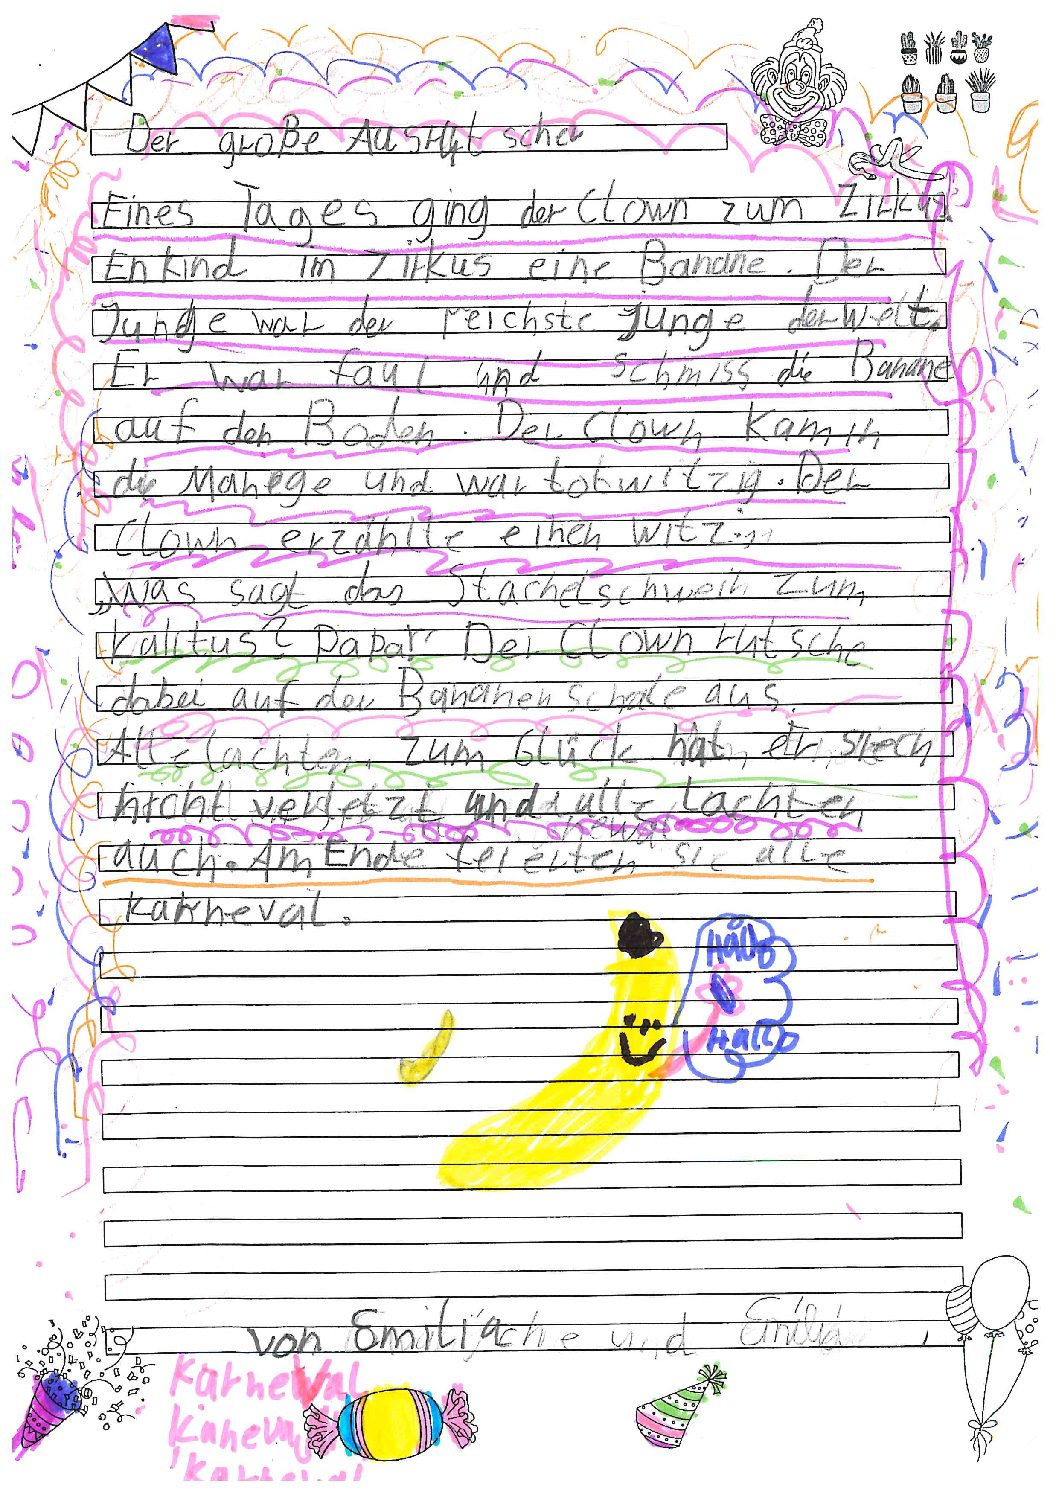 Der große Ausrutscher
Eines Tages ging der Clown zum Zirkus
Enkind im Zirkus eine Banane. Der
Junge war der reichste Junge der Welt.
Er war faul und schmiss die Banane
auf den Boden. Der Clown Kam in
die Manege und war totwitzig. Der
Clown erzählte einen Witz...
„Was sagt das Stachelschwein zum
Kaktus? Papa!" Der Clown rutsche
dabei auf der Bananenschale aus.
Alle lachten. Zum Glück hat er sich
nicht verletzt und alle Lachten
auch. Am Ende feierten sie alle
Karneval.
Hallo
Hallo
von Emilija und
Karneval
Kaneval
Karneval